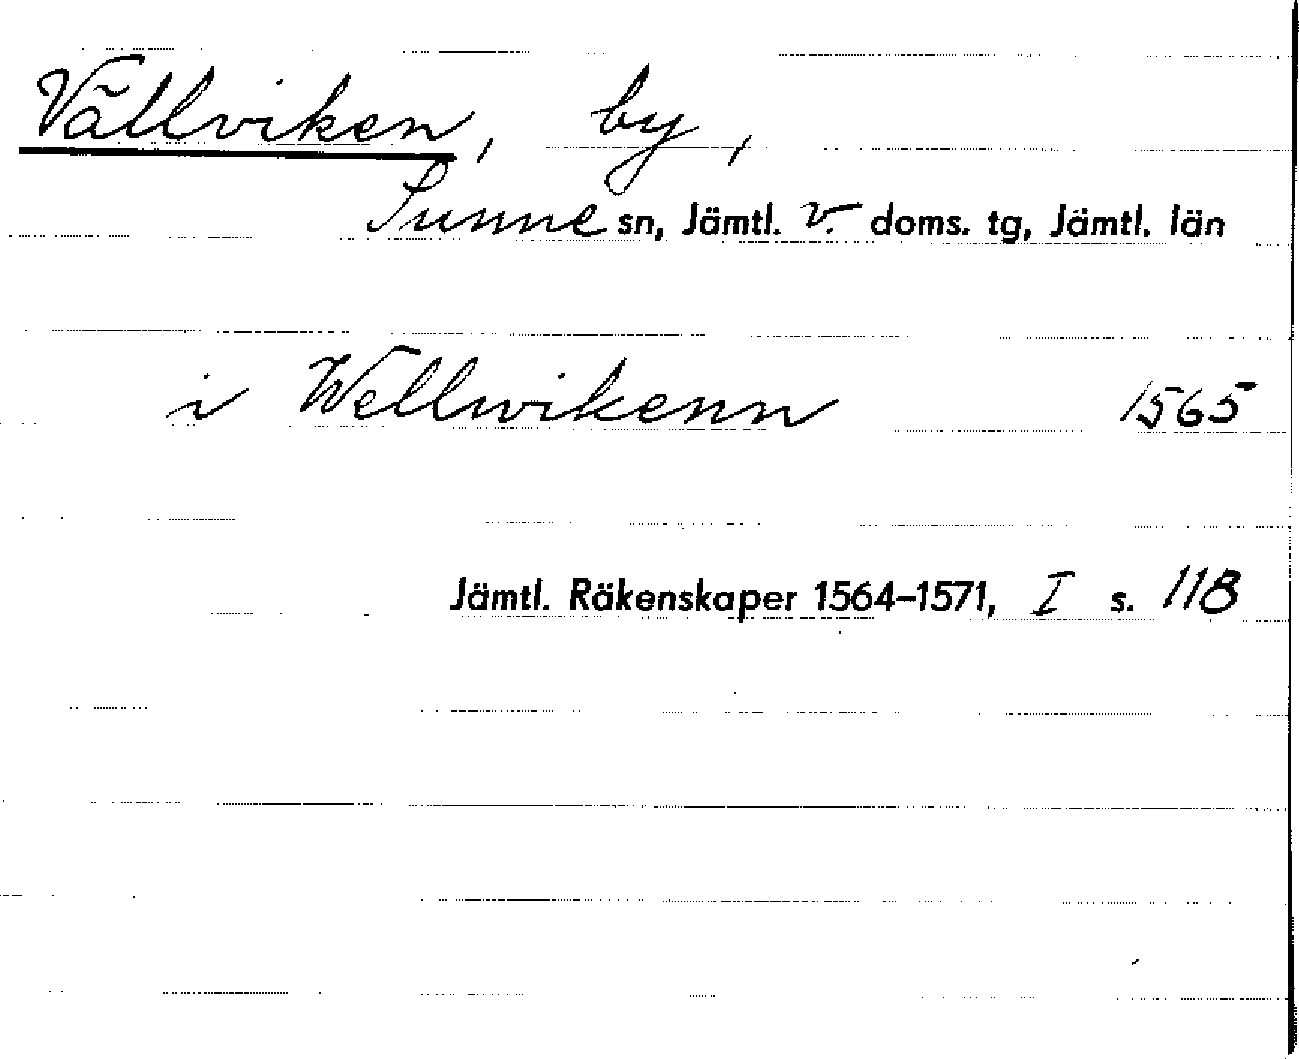 Vällviken, by,
Sunne sn, Jämtl. v. doms. tg, Jämtl. län
i Wellwikenn 1565
Jämtl. Räkenskaper 1564–1571, I s. 118